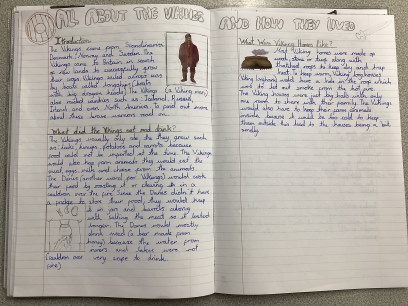 ALL ABOUT THE VIKINGS
AND HOW THEY LIVED
Introduction
The Vikings came from Scandinavia:
Denmark, Norway and Sweden. The
Vikings came to Britain in search
of new lands to successfully grow
their crops. Vikings sailed across seas
by boats called longships (boats
with big dragon heads). The Vikings
also raided countries such as Ireland,
Iceland and even North America. To find out more
about these brave warriors read on...
(A Viking man)
What did the Vikings eat and drink?
The Vikings usually ate what they grew such
as: leeks, turnips, potatoes and carrots because
food could not be imported at the time. The Vikings
would also keep farm animals they would eat the
meat, eggs, milk and cheese from the animals.
The Danes (another word for Vikings) would cook
their food by roasting it or placing it in a
cauldron over the fire. Since the Danes didn't have
a fridge to store their food, they would hang
it in and outside along
with salting the meat so it lasted
longer. The Danes would mostly
drink mead (a beer made from
honey) because the water from
rivers and lakes were not
very safe to drink.
(cauldron over
fire)
What Were Viking Homes Like?
Most Viking homes were made of
wood, stone or turf along with
thatched roofs to keep dry and trap
heat to keep warm. Viking longhouses
had a hole in the roof which
was to let out smoke from the hot fire.
The Viking houses were just big halls with only
one room to share with their family. The Vikings
would also have to keep their farm animals
inside because it would be too cold to keep
them outside this lead to the houses being a bit
smelly.